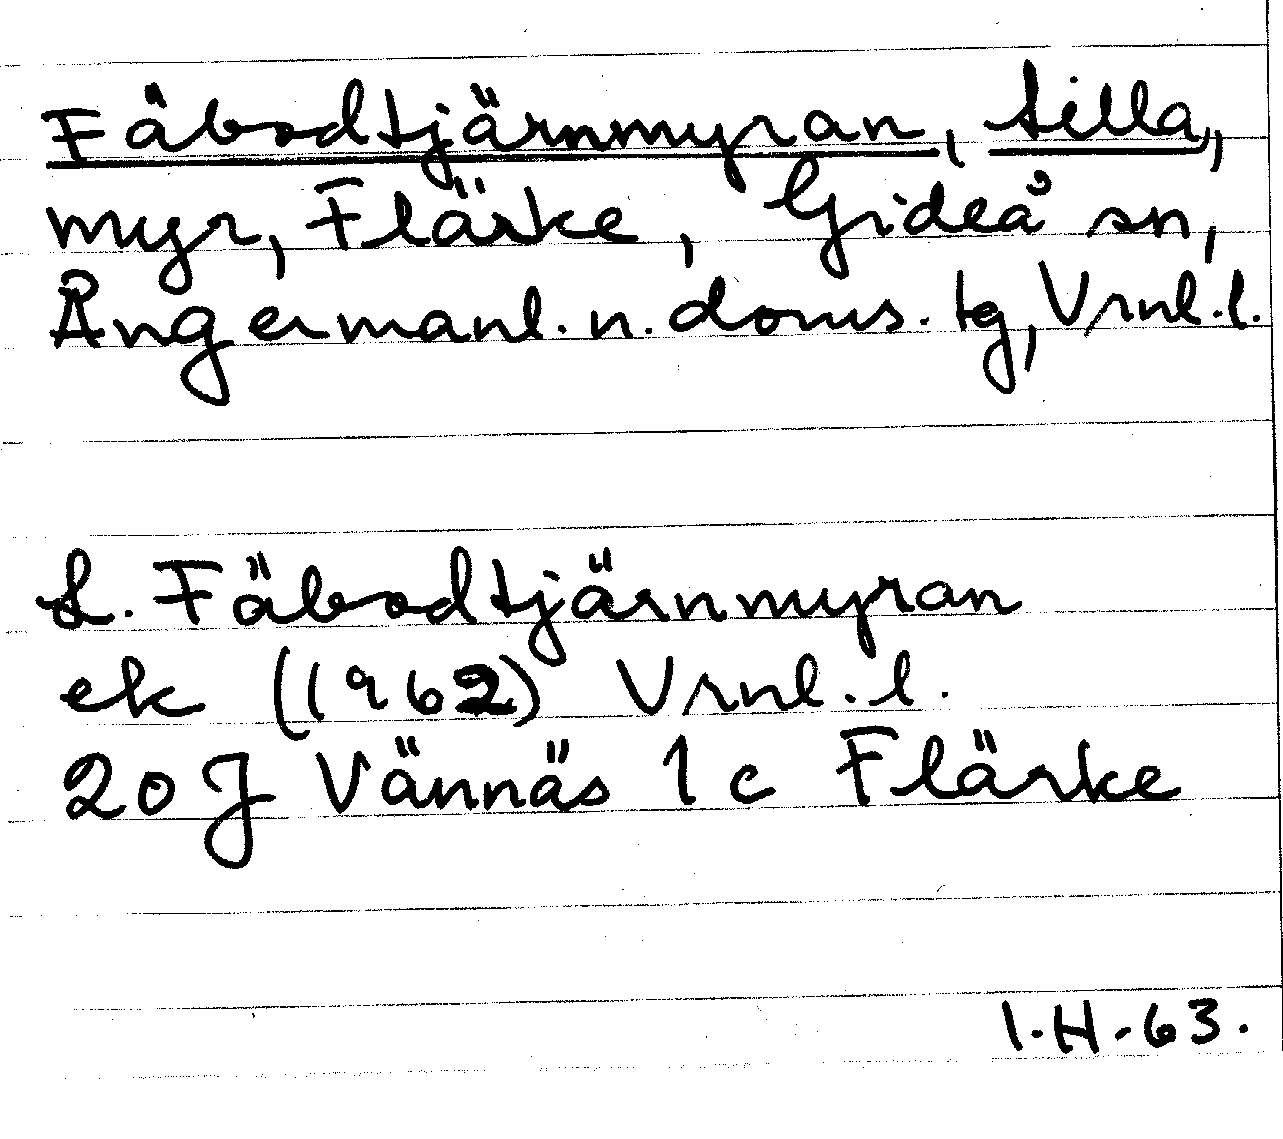 Fäbodtjärnmyran, Lilla,
myr, Flärke, Gideå sn,
Ångermanl. n. doms. tg, Vrnl. l.
L. Fäbodtjärnmyran
ek (1962) Vrnl. l.
20 J Vännäs 1 c Flärke
I.H.-63.